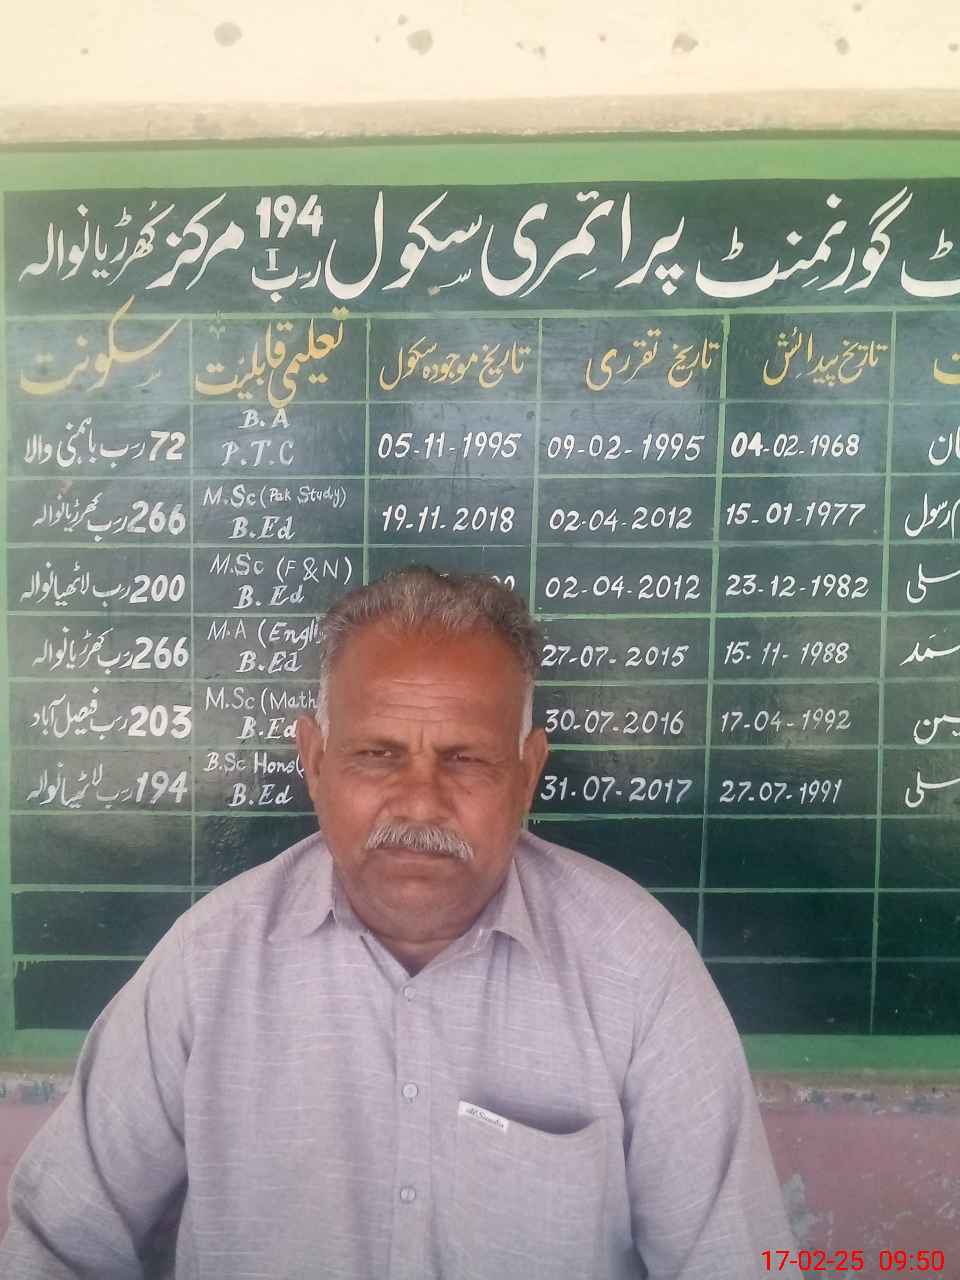 گورنمنٹ پرائمری سکول 194 رب I مرکز کھرڑیانوالہ
تاریخ پیدائش تاریخ تقرری تاریخ موجودہ سکول تعلیمی قابلیت سکونت
04-02-1968 09-02-1995 05-11-1995 B.A P.T.C 72 رب باہمنی والا
رسول 15-01-1977 02-04-2012 19-11-2018 M.Sc (Pak Study) B.Ed 266 رب کھرڑیانوالہ
23-12-1982 02-04-2012 M.Sc (F&N) B.Ed 200 رب لاٹھیانوالہ
15-11-1988 27-07-2015 M.A (Engli B.Ed 266 رب کھرڑیانوالہ
17-04-1992 30-07-2016 M.Sc (Math B.Ed 203 رب فیصل آباد
27-07-1991 31-07-2017 B.Sc Hons( B.Ed 194 رب لاٹھیانوالہ
17-02-25 09:50